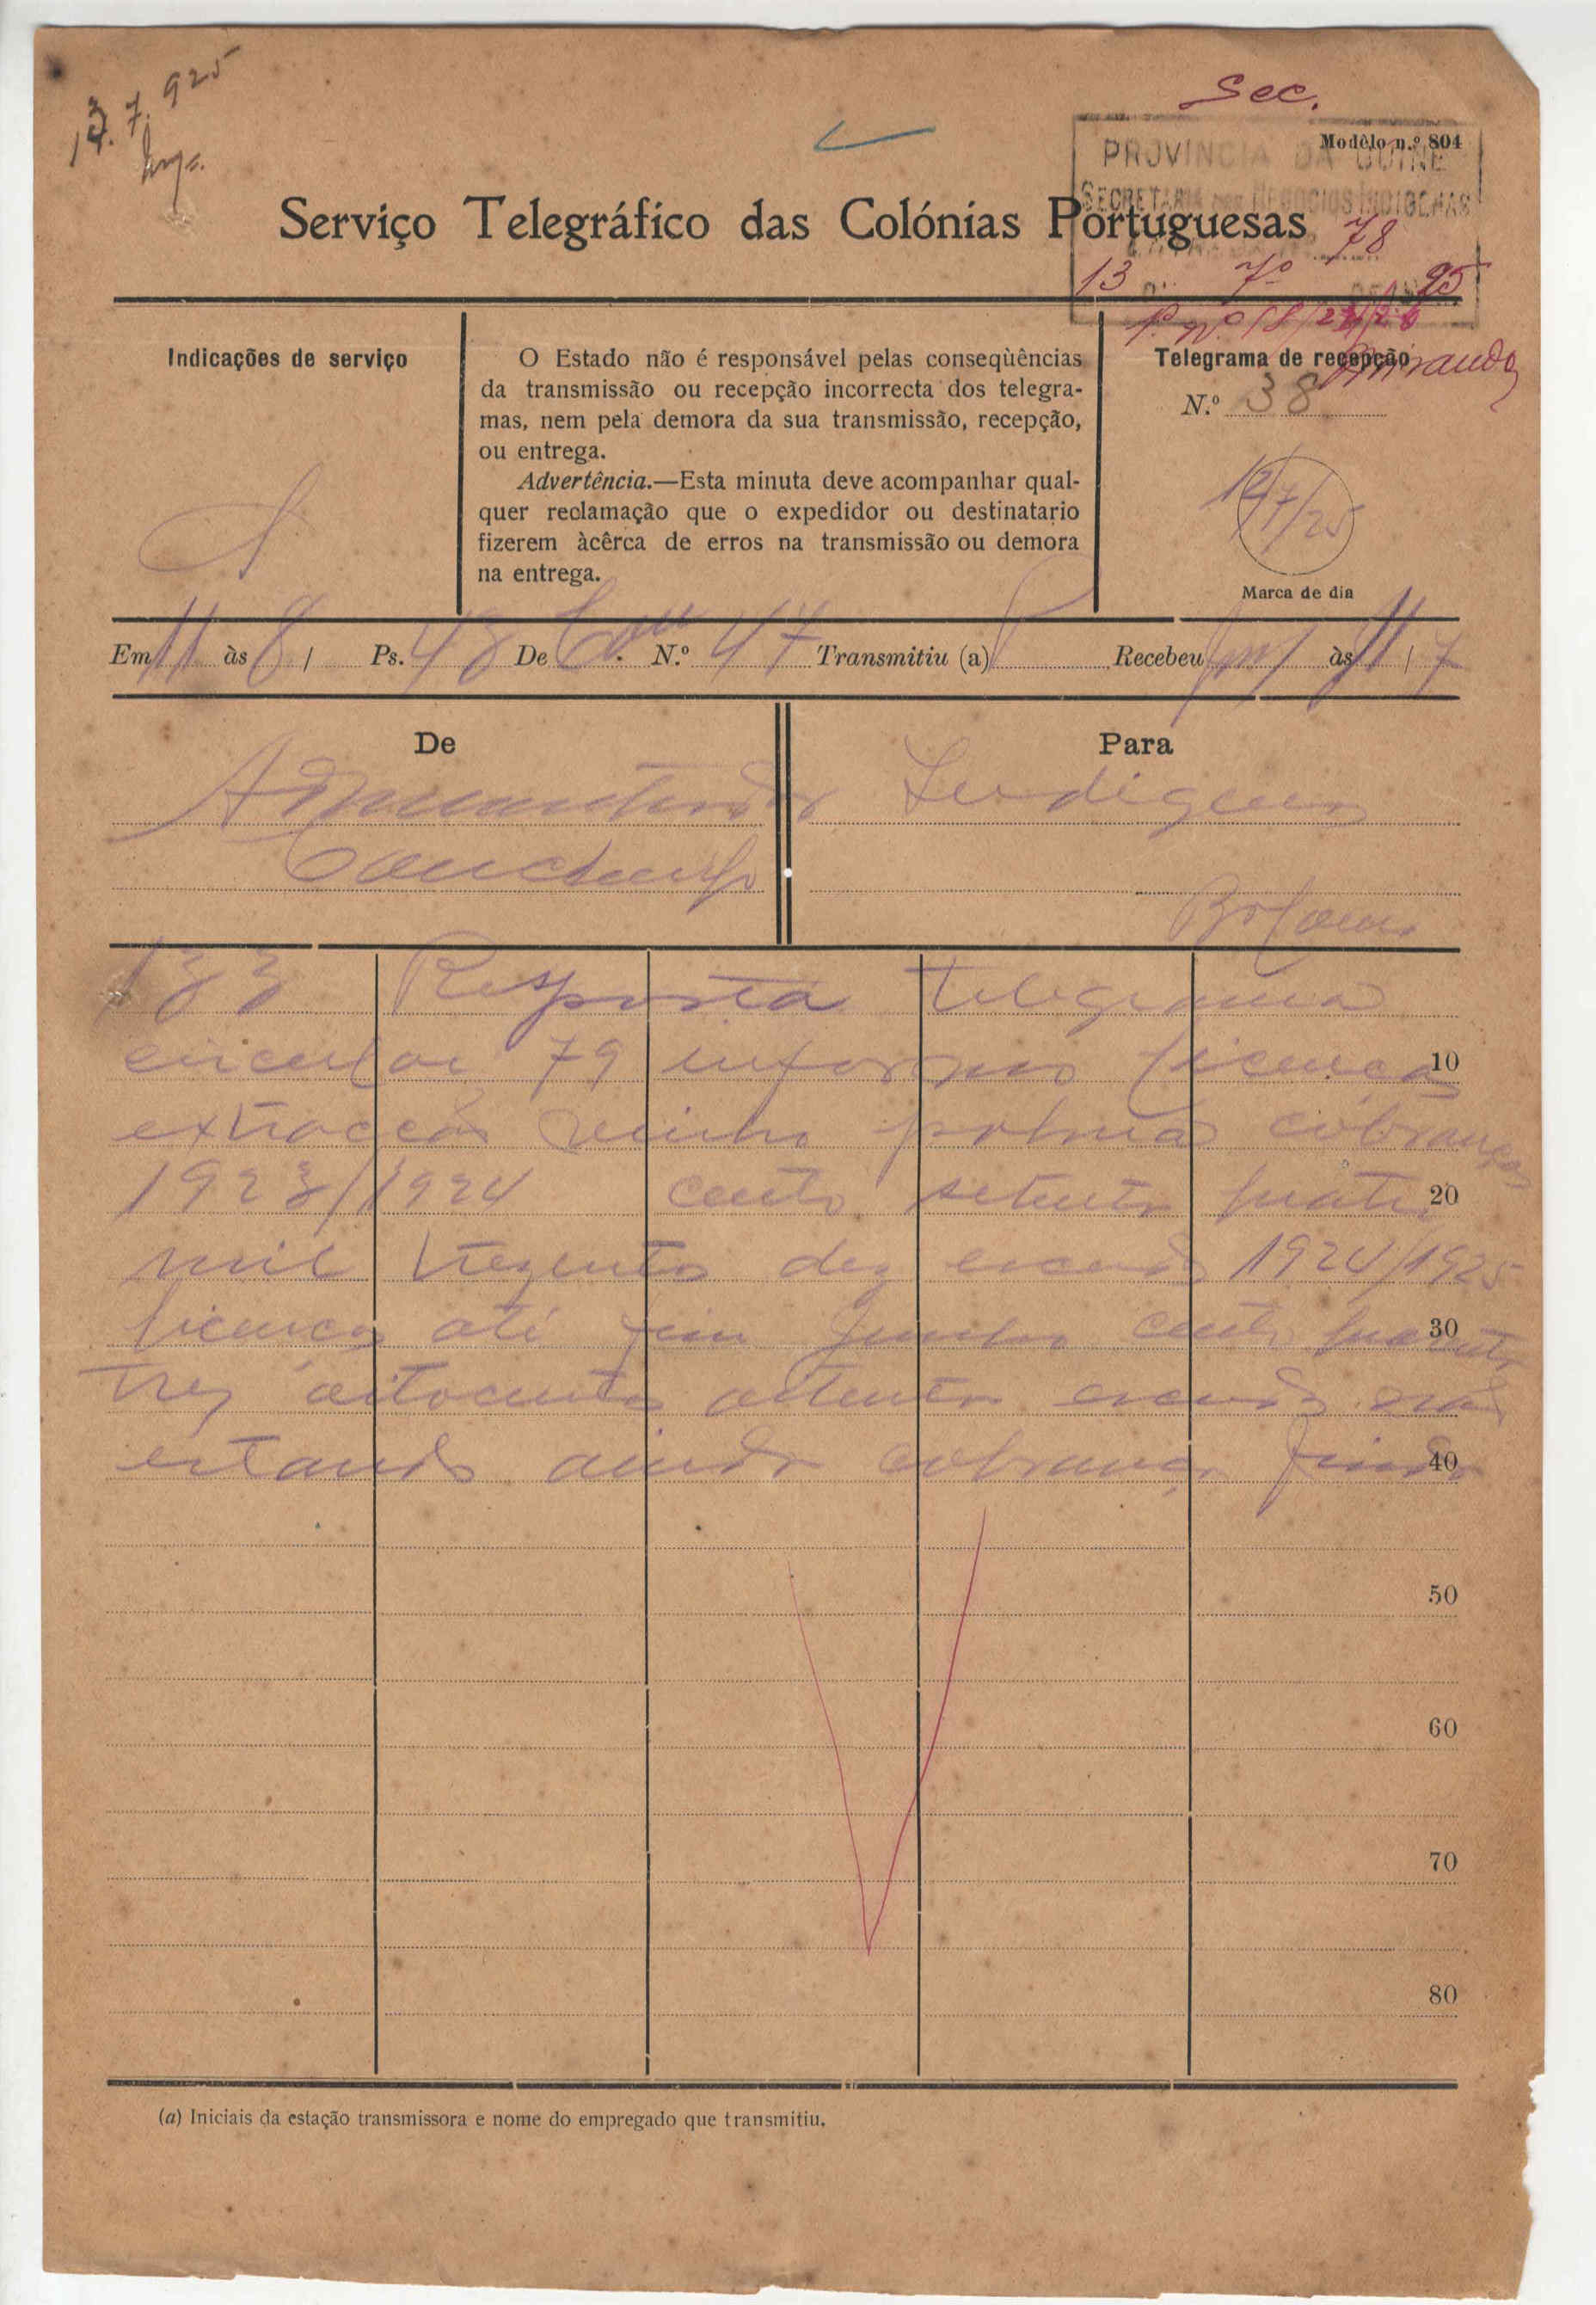 13.7.925
Sec.
Modêlo n.º 804
PROVINCIA DA GUINÉ
SECRETARIA DOS NEGOCIOS INDIGENAS
Serviço Telegráfico das Colónias Portuguesas
78
13 7º 25
P. nº
Miranda
Indicações de serviço
S
O Estado não é responsável pelas conseqùências
da transmissão ou recepção incorrecta dos telegra-
mas, nem pela demora da sua transmissão, recepção,
ou entrega.
Advertência.—Esta minuta deve acompanhar qual-
quer reclamação que o expedidor ou destinatario
fizerem àcêrca de erros na transmissão ou demora
na entrega.
Telegrama de recepção
N.º 38
12/7/25
Marca de dia
Em 11 às 8 / Ps. 48 De N.º 47 Transmitiu (a) Recebeu às 11 / 7
De
Administrador
Canchungo
Para
Indigenas
Bolama
133 Resposta telegrama
circular 79 informo licenças 10
extracção vinho palma cobranças
1923/1924 cento setenta quatro 20
mil trezentos dez escudos 1924/1925
licenças até fim Junho cento quarenta 30
tres oitocentos oitenta escudos não
estando ainda cobrança finda 40
50
60
70
80
(a) Iniciais da estação transmissora e nome do empregado que transmitiu.